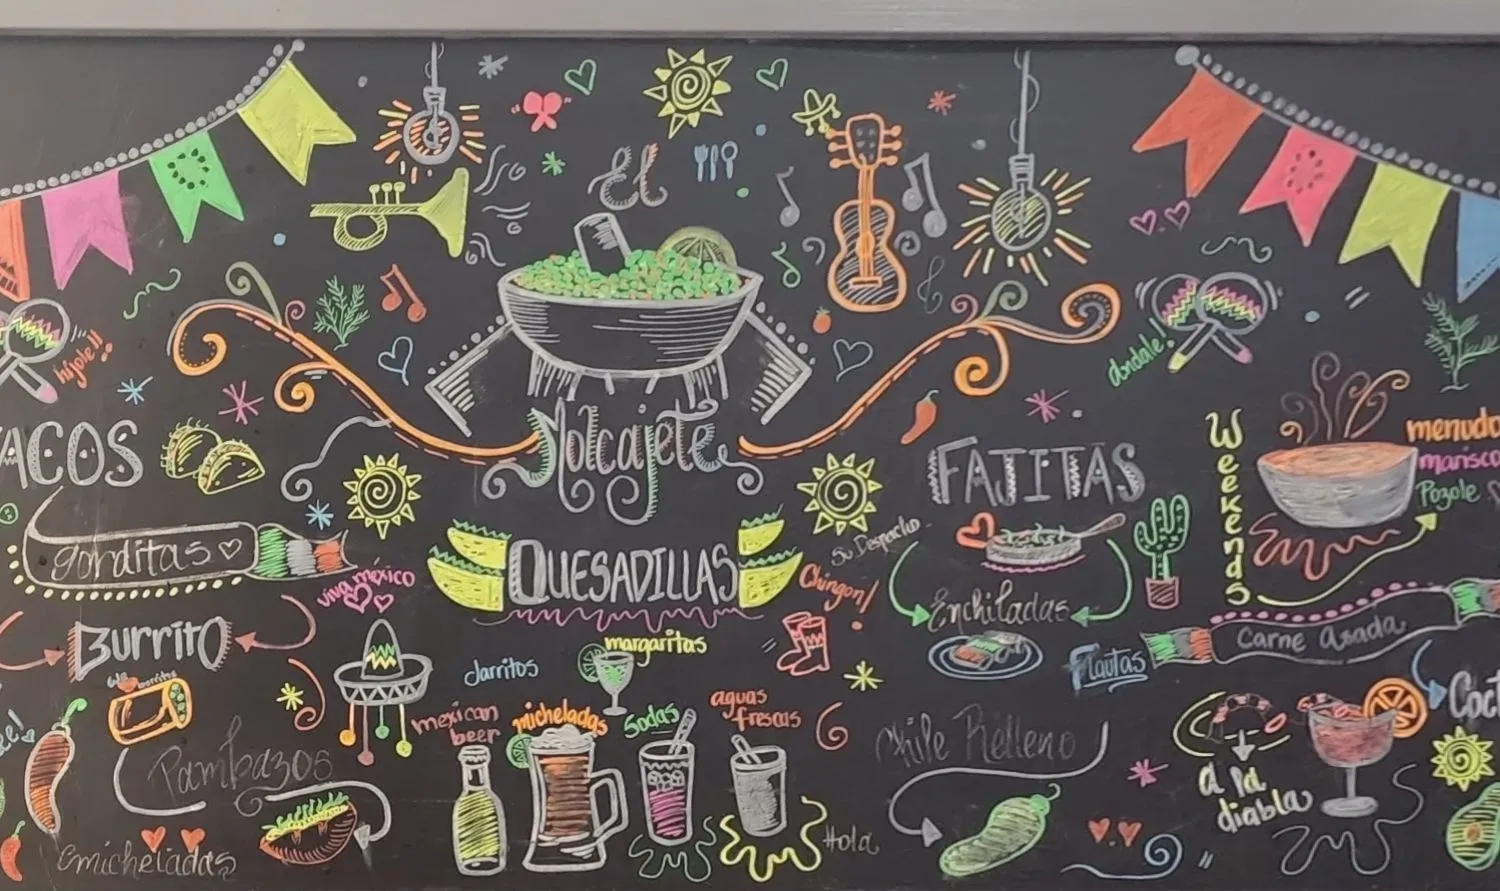 El
Molcajete
híjole!!
ándale!
TACOS
gorditas
BURRITO
Pambazos
Emicheladas
viva mexico
QUESADILLAS
Su Despacho
Chingon!
Jarritos
margaritas
mexican
beer
micheladas
Sodas
aguas
frescas
Hola
FAJITAS
Enchiladas
Flautas
Chile Relleno
Weekends
menudo
marisco
Pozole
Carne Asada
a la
diabla
Coct